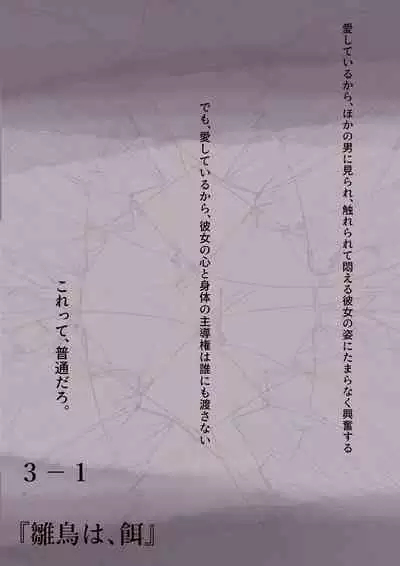 愛しているから、ほかの男に見られ、触れられて悶える彼女の姿にたまらなく興奮する
でも、愛しているから、彼女の心と身体の主導権は誰にも渡さない
これって、普通だろ。
3－1
『雛鳥は、餌』